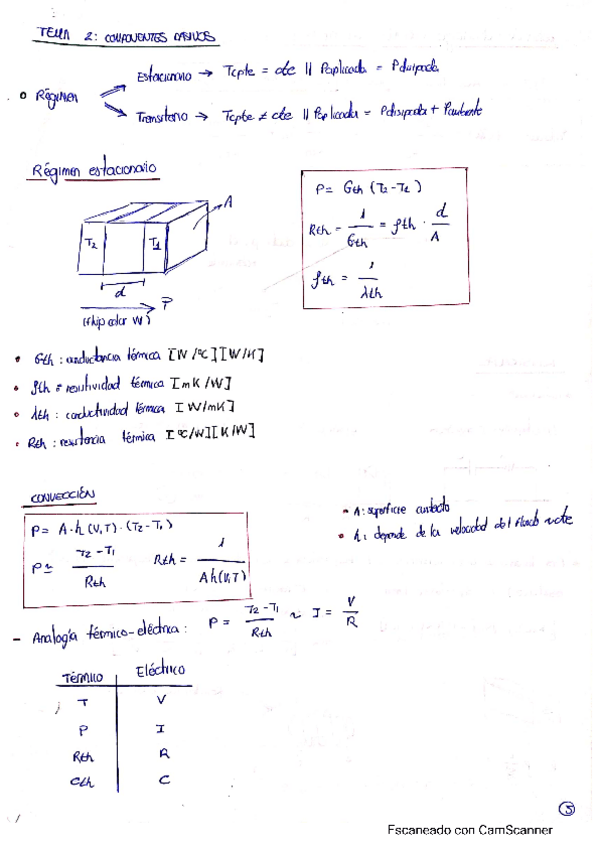 TEMA 2: COMPONENTES PASIVOS
Régimen
Estacionario → Tcpte = cte || Paplicada = Pdisipada
Transitorio → Tcpte ≠ cte || Paplicada = Pdisipada + Pambiente
Régimen estacionario
P = Gth (T2 - T1)
Rth = 1/Gth = ρth · d/A
ρth = 1/λth
A
T2 T1
d
P
(flujo calor W)
• Gth : conductancia térmica [W/°C][W/K]
• ρth = resistividad térmica [mK/W]
• λth : conductividad térmica [W/mK]
• Rth : resistencia térmica [°C/W][K/W]
CONVECCIÓN
P = A·h (V,T) · (T2 - T1)
P = T2 - T1 / Rth Rth = 1 / Ah(V,T)
- A: superficie contacto
• h: depende de la velocidad del fluido
- Analogía térmico-eléctrica: P = T2 - T1 / Rth ~ I = V/R
Térmico Eléctrico
T V
P I
Rth R
Cth C
5
Escaneado con CamScanner